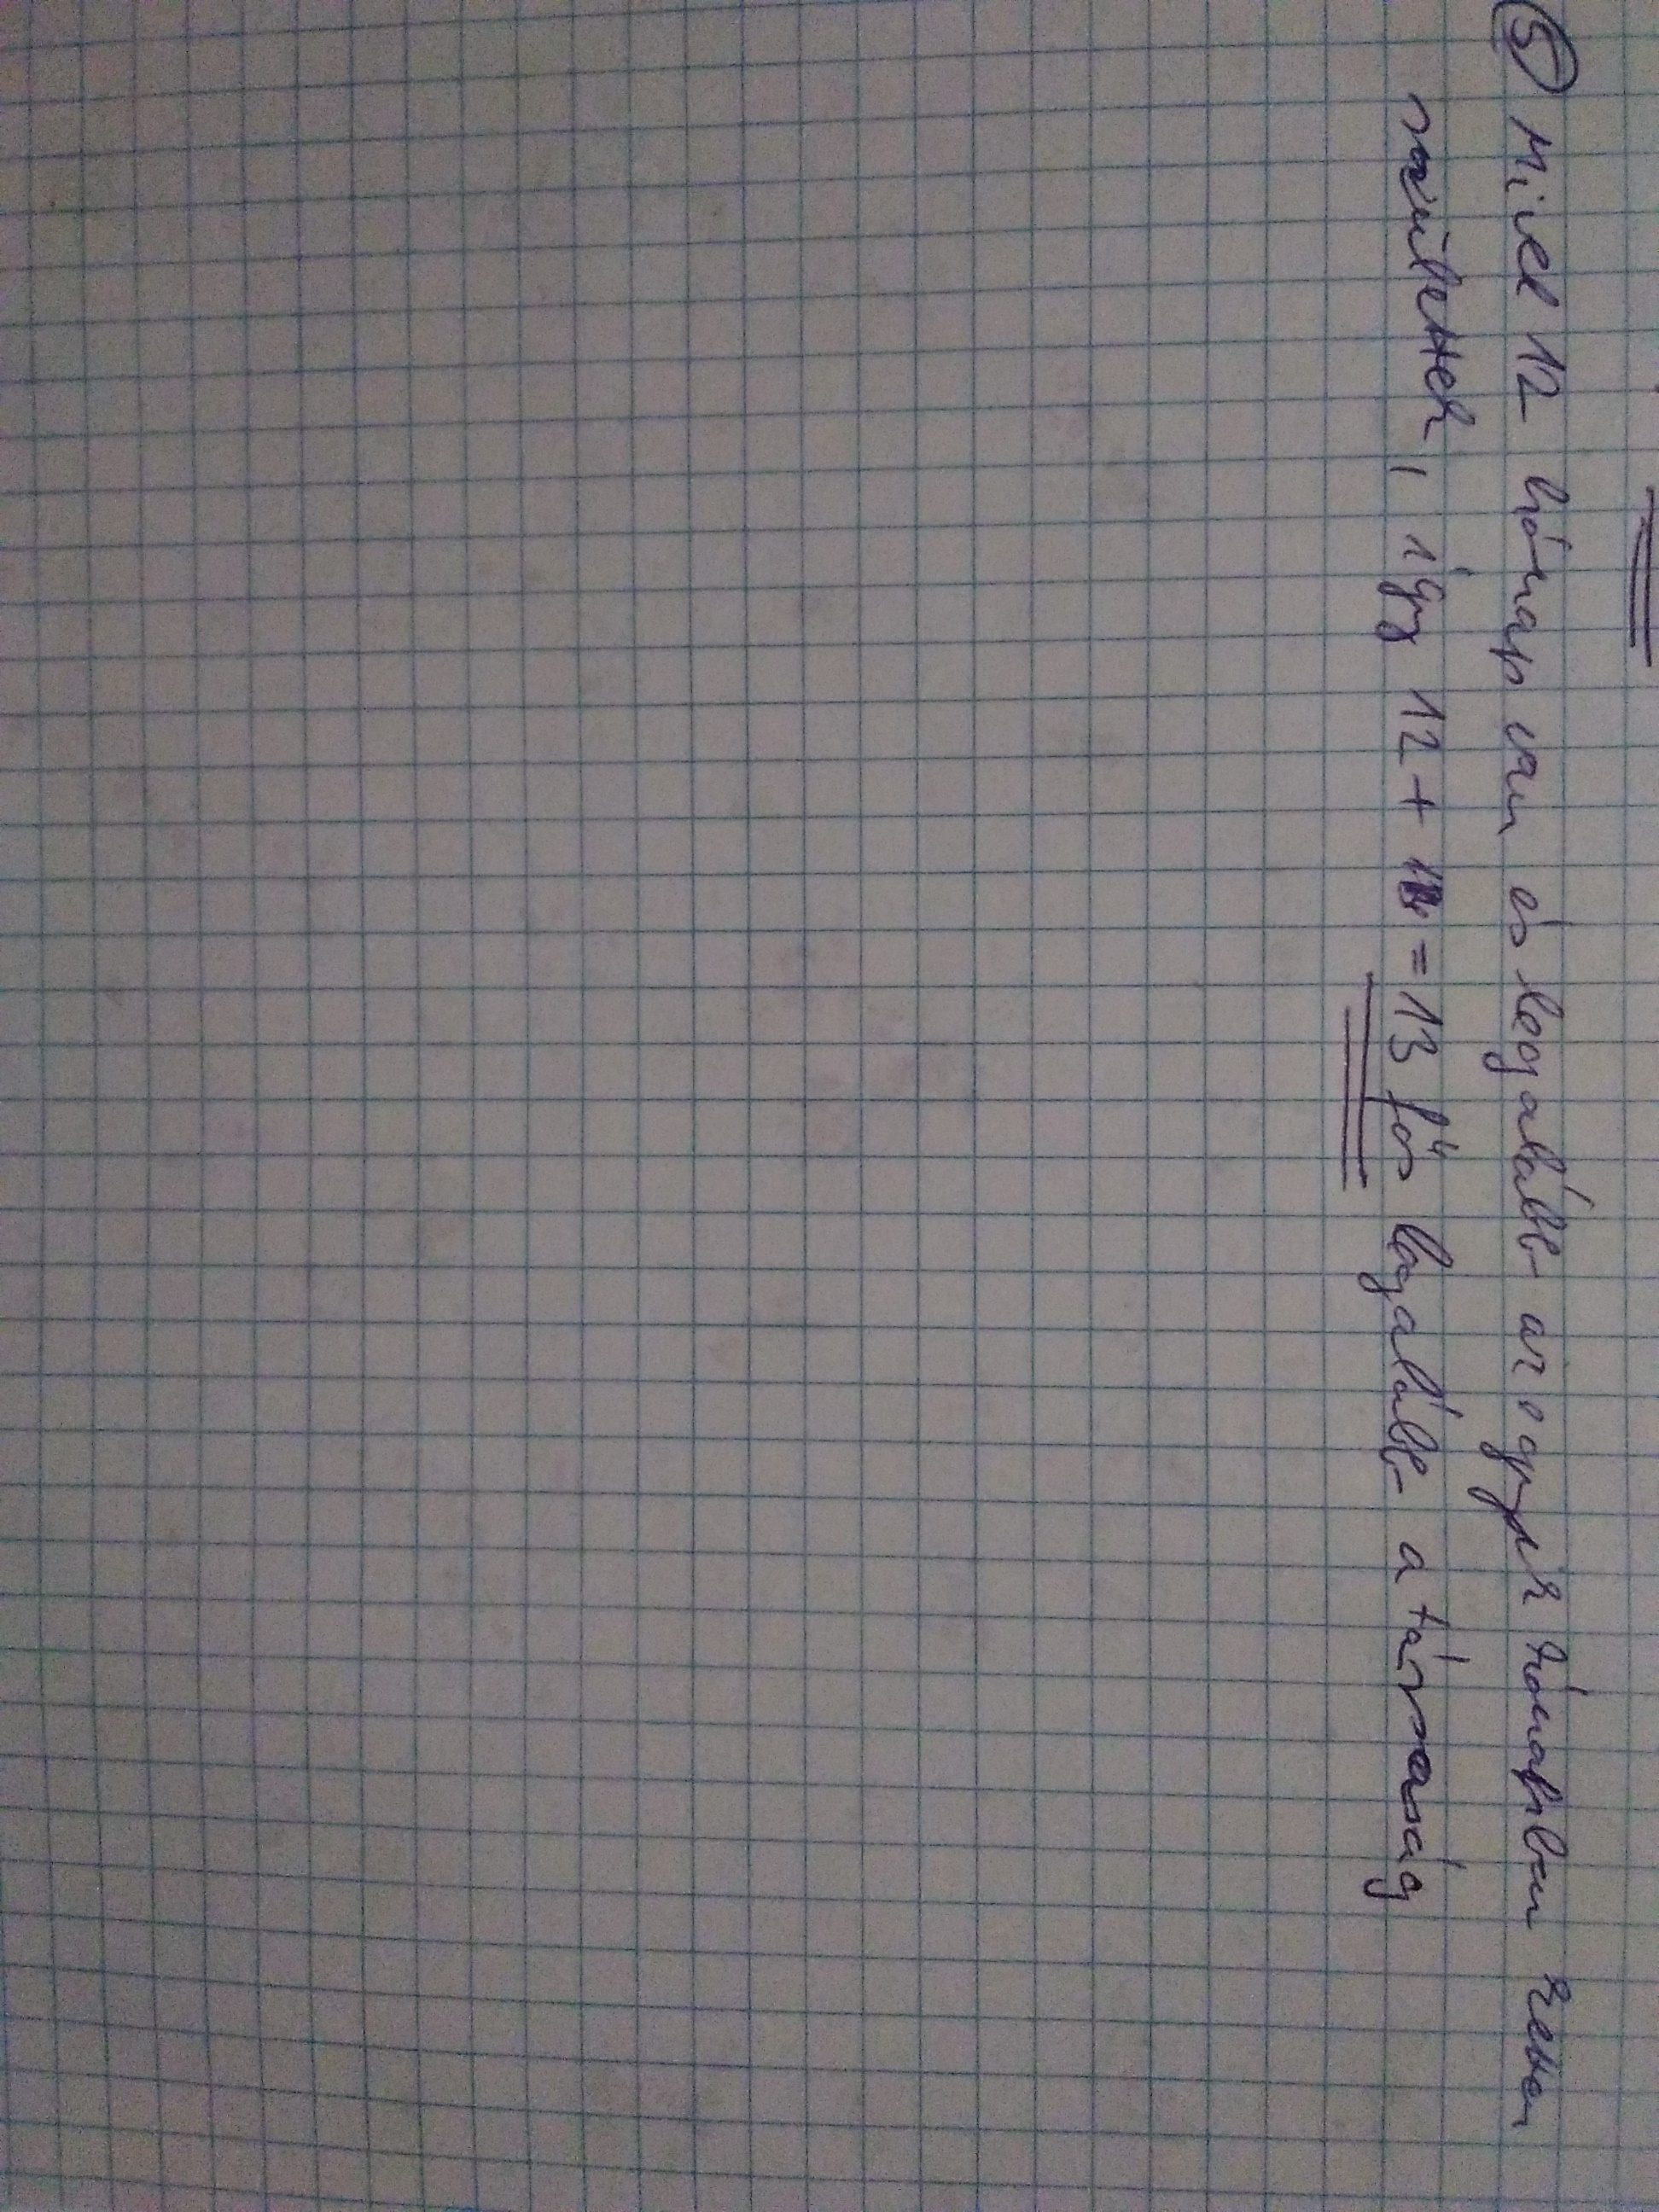 ⑤ Mivel 12 hónap van és legalább az egyik hónapban ketten
születtek, így 12 + 1 = 13 fős legalább a társaság